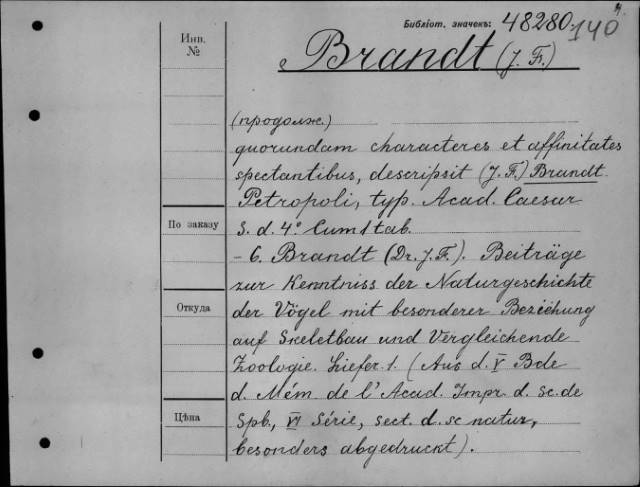 Библіот. значекъ: 48280. 140
Инв.
№
Brandt (J. F.)
(продолж.)
quorundam characteres et affinitates
spectantibus, descripsit (J. F.) Brandt.
Petropoli, typ. Acad. Caesar
S. d. 4° Cum 1 tab.
По заказу
- 6. Brandt (Dr. J. F.). Beiträge
zur Kenntniss der Naturgeschichte
Откуда
der Vögel mit besonderer Beziehung
auf Skeletbau und Vergleichende
Zoologie. Liefer. 1. (Aus d. V Bde
d. Mém. de l'Acad. Impr. d. sc. de
Цѣна
Spb., VI Série, sect. d. sc natur,
besonders abgedruckt).